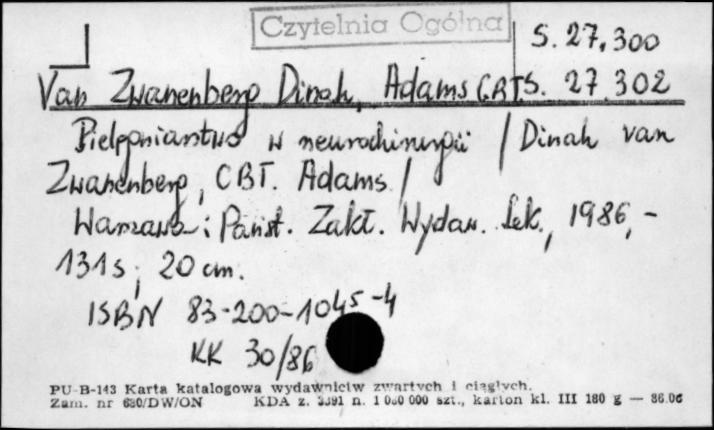 Czytelnia Ogólna
S. 27.300
Van Zwanenberg Dinah, Adams C.B.T. S. 27.302
Pielęgniarstwo w neurochirurgii / Dinah van
Zwanenberg, CBT. Adams /
Warszawa : Państ. Zakł. Wydaw. Lek., 1986, -
131 s ; 20 cm.
ISBN 83-200-1045-4
KK 30/86
PU-B-143 Karta katalogowa wydawnictw zwartych i ciągłych.
Zam. nr 680/DW/ON KDA z. 3391 n. 1 000 000 szt., karton kl. III 180 g — 86.06